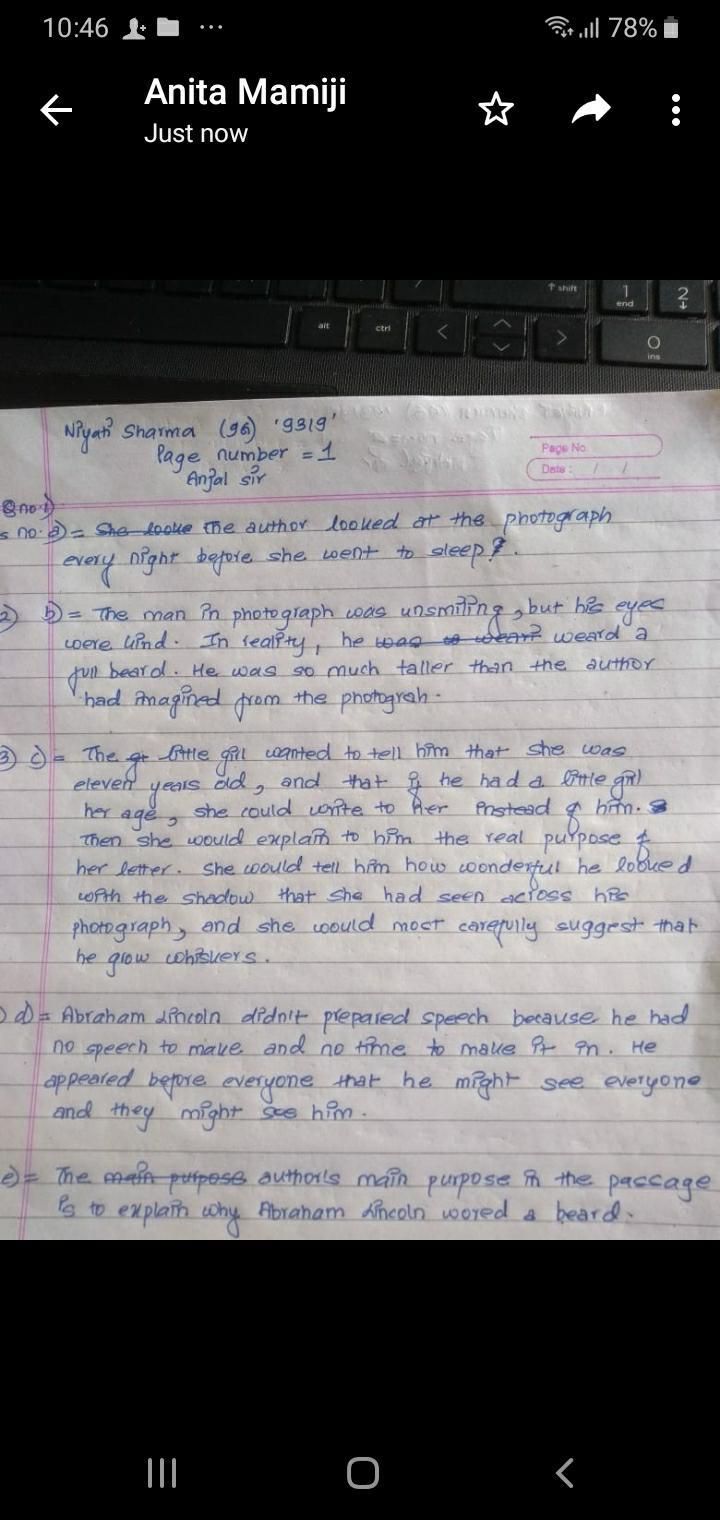 10:46 ... 78%
Anita Mamiji
Just now
↑ shift
1
end
2
↓
alt
ctrl
0
ins
Niyati Sharma (96) '9319'
Page number = 1
Anjal sir
Page No.
Date : / /
Q no 1)
s no. a) = She looke The author looked at the photograph
every night before she went to sleep?.
2) b) = The man in photograph was unsmiling, but his eyes
were kind. In reality, he was so wear? weard a
full beard. He was so much taller than the author
had imagined from the photograh.
3) c) = The gt little girl wanted to tell him that she was
eleven years old, and that if he had a little girl
her age, she could write to her instead of him.
Then she would explain to him the real purpose of
her letter. She would tell him how wonderful he looked
with the shadow that she had seen across his
photograph, and she would most carefully suggest that
he grow whiskers.
d) = Abraham Lincoln didn't prepared speech because he had
no speech to make and no time to make it in. He
appeared before everyone that he might see everyone
and they might see him.
e) = The main purpose author's main purpose in the passage
is to explain why Abraham Lincoln wored a beard.